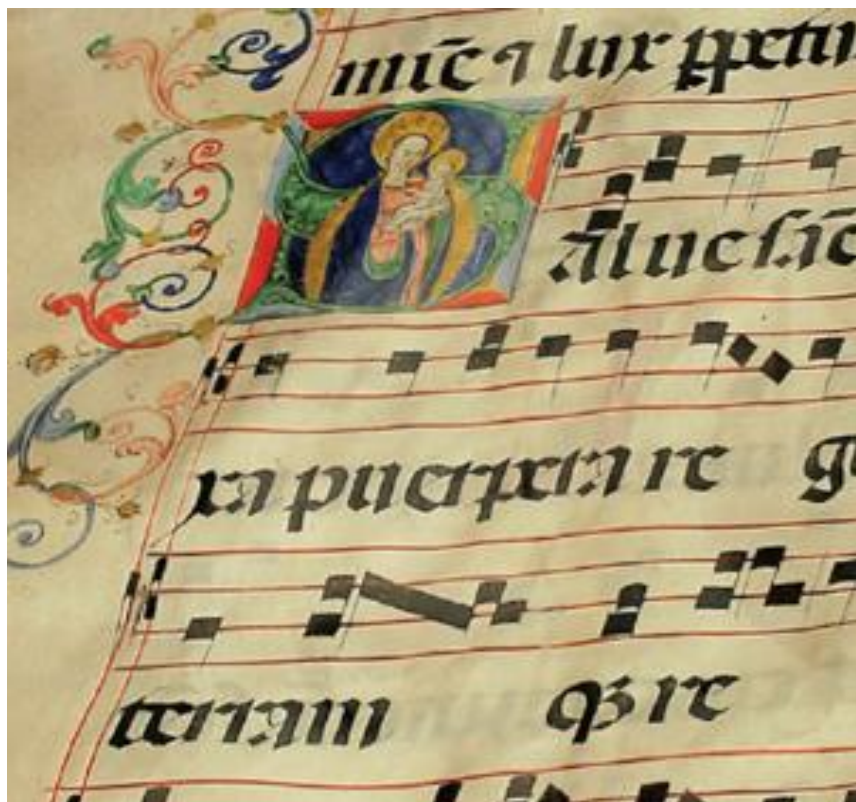 mīe ⁊ lux ꝑpetu
Salue sāc
xa puerpera re g
terram qꝫ re